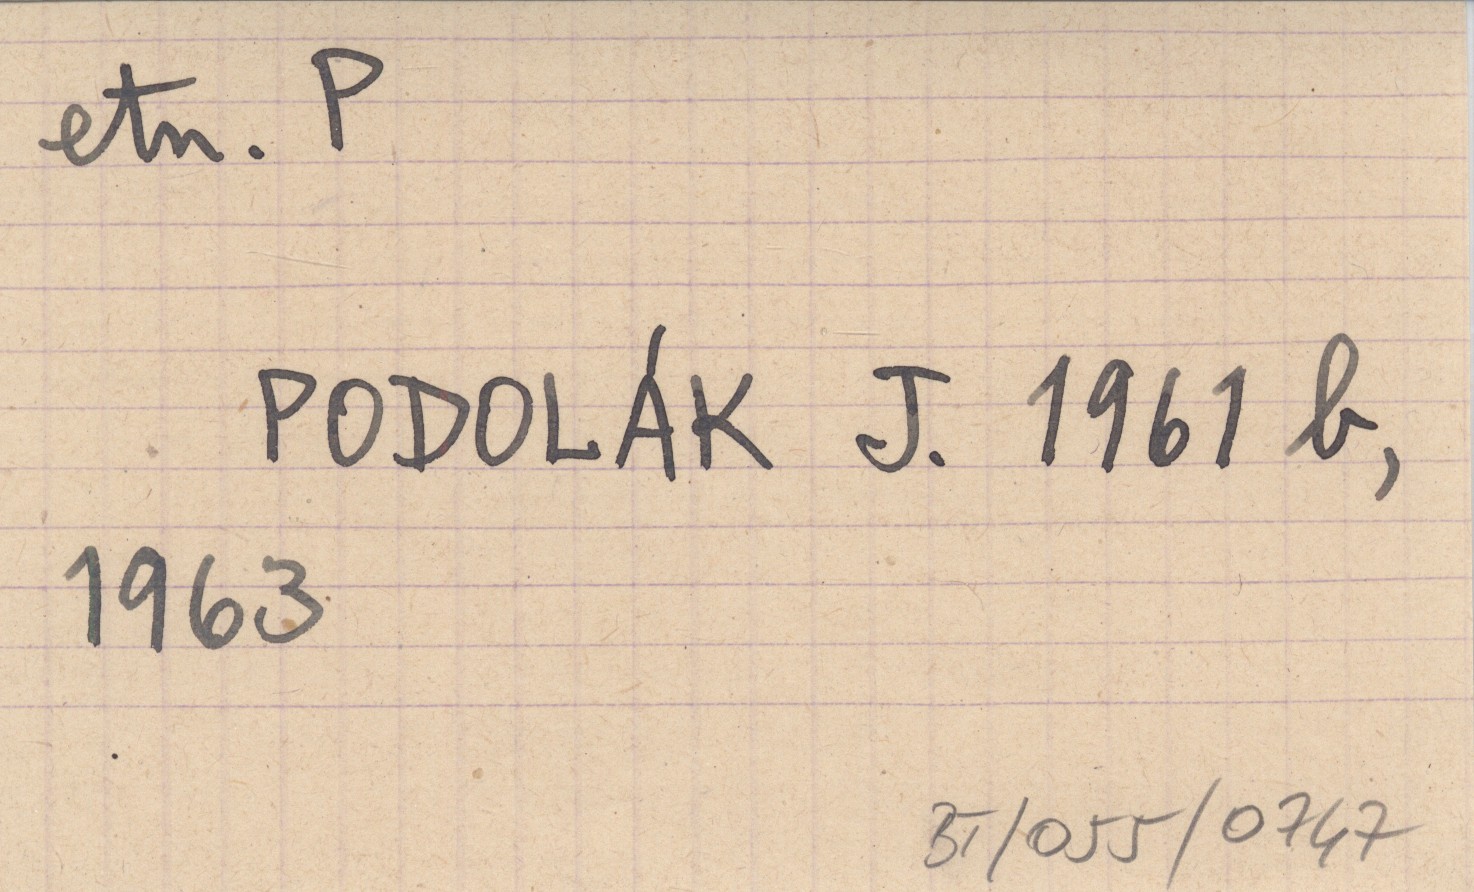 etn. P
PODOLÁK J. 1961 b,
1963
BI/055/0747